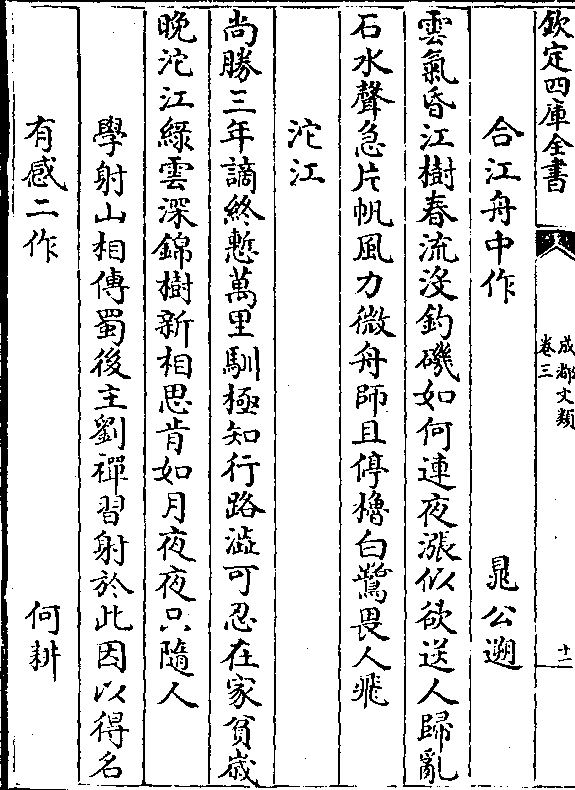 欽定四庫全書
成都文類
卷三
十二
合江舟中作 晁公遡
雲氣昏江樹春流沒釣磯如何連夜漲似欲送人歸亂
石水聲急片帆風力微舟師且停櫓白鷺畏人飛
沱江
尚勝三年謫終慙萬里馴極知行路澁可忍在家貧歲
晚沱江綠雲深錦樹新相思肯如月夜夜只隨人
學射山相傳蜀後主劉禪習射於此因以得名
有感二作 何耕